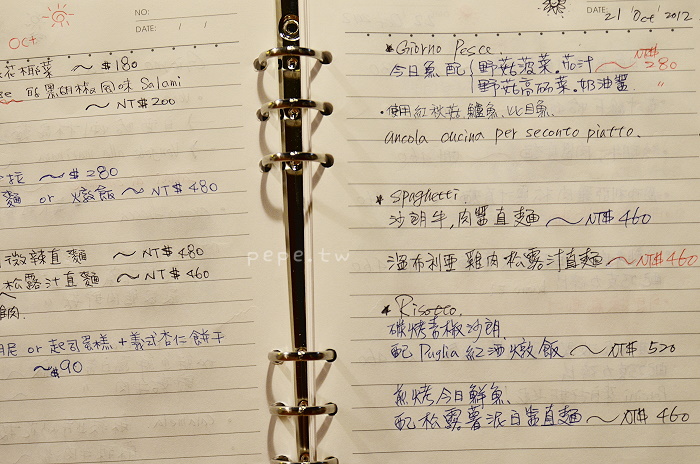 NO:
DATE: / /
Oct
花椰菜 ~ $180
黑胡椒風味 Salami
~ NT$200
~ $280
麵 or 燉飯 ~ NT$ 480
微辣直麵 ~ NT$ 480
松露汁直麵 ~ NT$ 460
肉.
or 起司蛋糕 + 義式杏仁餅干
~$90
pepe.tw
DATE: 21 'Oct' 2012
* Giorno Pesce.
今日魚配 野菇菠菜.茄汁 ~ NT$ 280
野菇高麗菜.奶油醬 "
·使用紅秋菇.鱸魚.比目魚.
ancola cucina per seconto piatto.
* Spaghetti.
沙朗牛,肉醬直麵 ~ NT$ 460
溫布利亞雞肉松露汁直麵 ~ NT$ 460
* Risotto.
碳烤青椒沙朗.
配 Puglia 紅酒燉飯 ~ NT$ 520
煎烤今日鮮魚.
配松露薯泥白醬直麵 ~ NT$ 460